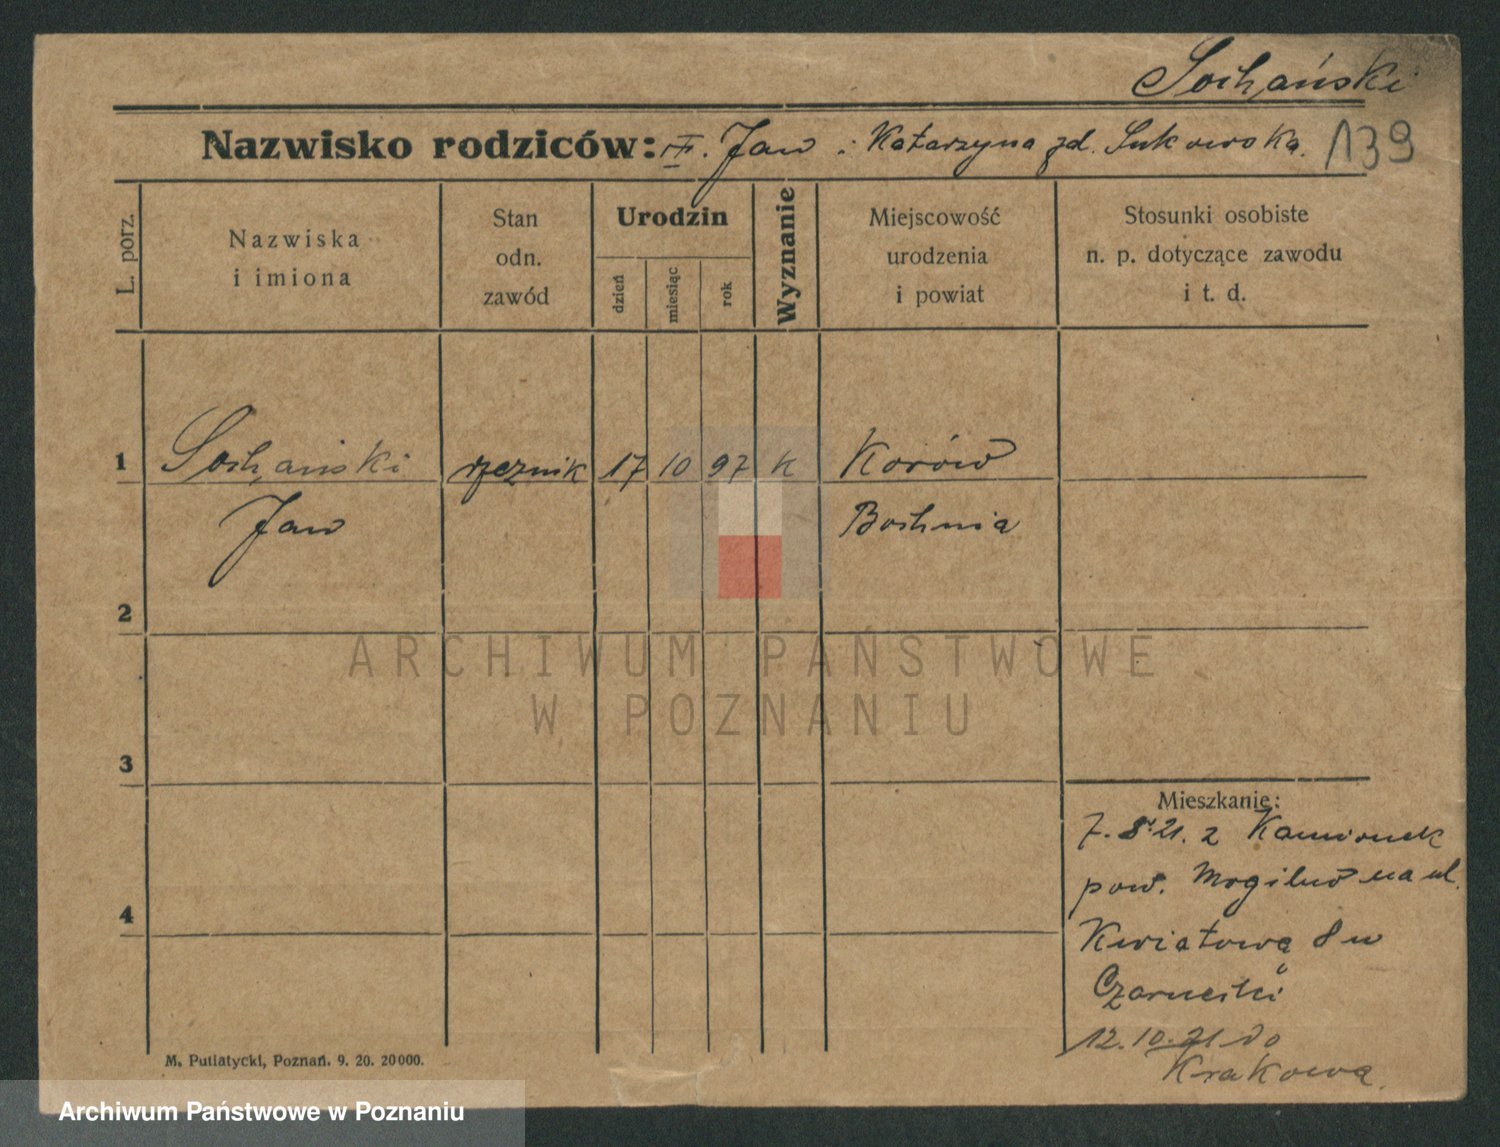 Sochański
Nazwisko rodziców: Jan i Katarzyna zd. Sukowska. 139
L. porz.
Nazwiska
i imiona
Stan
odn.
zawód
Urodzin
dzień
miesiąc
rok
Wyznanie
Miejscowość
urodzenia
i powiat
Stosunki osobiste
n. p. dotyczące zawodu
i t. d.
1 Sochański rzeznik 17 10 97 k Korów
Jan Bochnia
2
3
4
ARCHIWUM PAŃSTWOWE
W POZNANIU
Mieszkanie:
7. 8. 21. z Kamionek
pow. Mogilno na ul.
Kwiatową 8 u
12.10.21 do
Krakowa.
M. Putiatycki, Poznań. 9. 20. 20000.
Archiwum Państwowe w Poznaniu